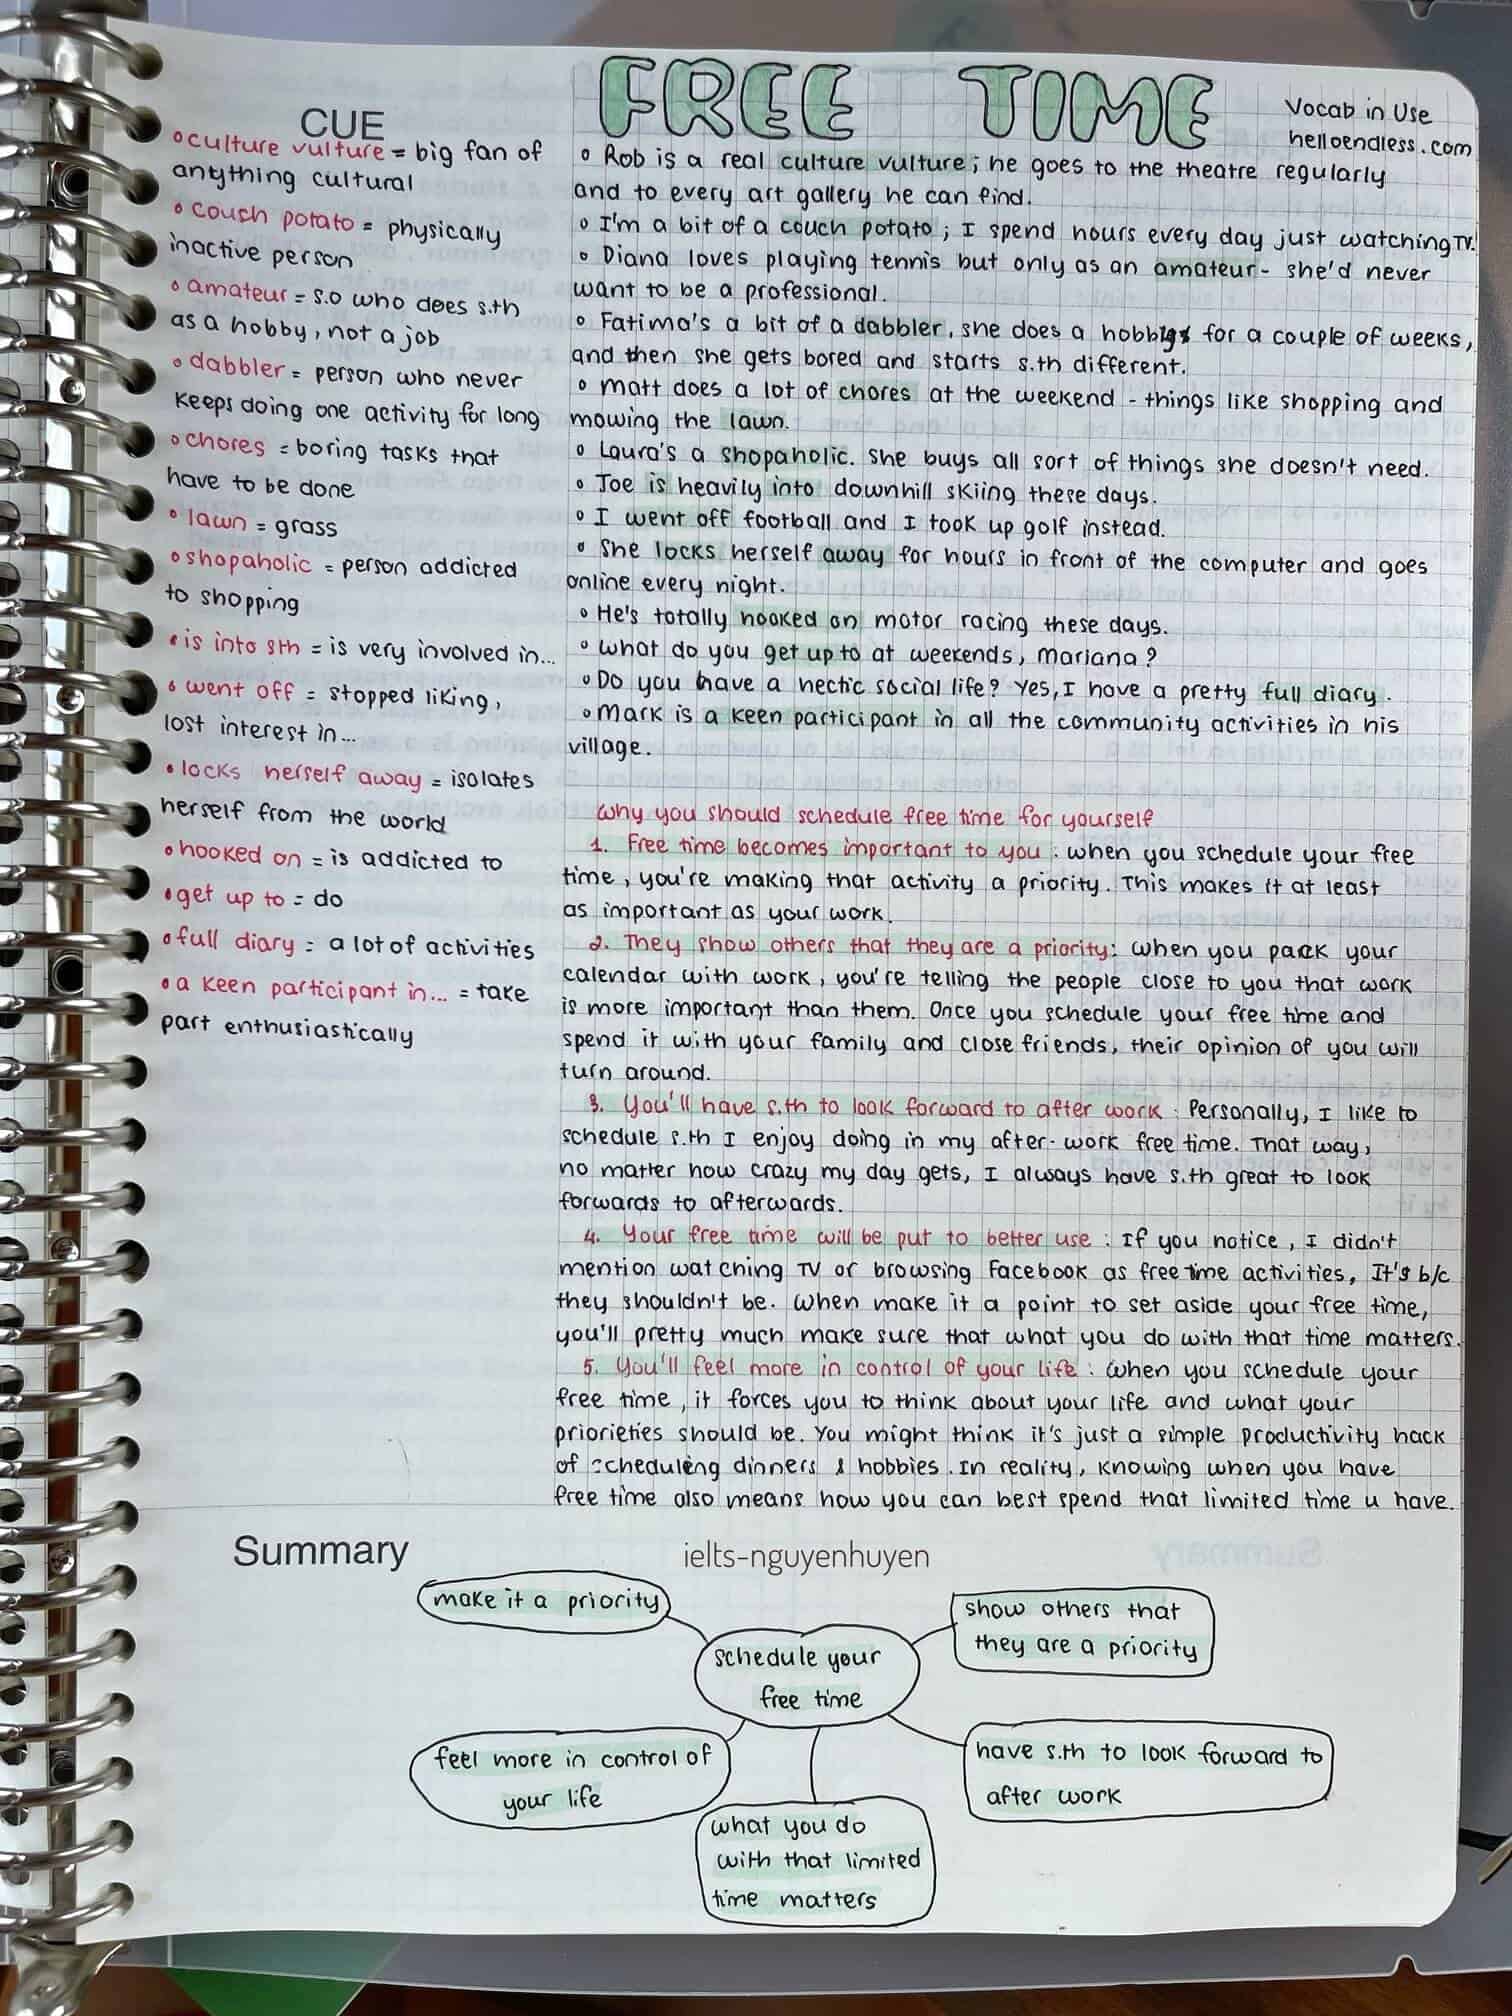 FREE TIME
Vocab in Use
helloendless.com
CUE
culture vulture = big fan of
anything cultural
couch potato = physically
inactive person
amateur = s.o who does s.th
as a hobby, not a job
dabbler = person who never
keeps doing one activity for long
chores = boring tasks that
have to be done
lawn = grass
shopaholic = person addicted
to shopping
is into sth = is very involved in...
went off = stopped liking,
lost interest in...
locks herself away = isolates
herself from the world
hooked on = is addicted to
get up to = do
full diary = a lot of activities
a keen participant in... = take
part enthusiastically
Rob is a real culture vulture; he goes to the theatre regularly
and to every art gallery he can find.
I'm a bit of a couch potato; I spend hours every day just watching TV.
Diana loves playing tennis but only as an amateur - she'd never
want to be a professional.
Fatima's a bit of a dabbler, she does a for a couple of weeks,
and then she gets bored and starts s.th different.
Matt does a lot of chores at the weekend - things like shopping and
mowing the lawn.
Laura's a shopaholic. She buys all sort of things she doesn't need.
Joe is heavily into downhill skiing these days.
I went off football and I took up golf instead.
She locks herself away for hours in front of the computer and goes
online every night.
He's totally hooked on motor racing these days.
What do you get up to at weekends, Mariana?
Do you have a hectic social life? Yes, I have a pretty full diary.
Mark is a keen participant in all the community activities in his
village.
Why you should schedule free time for yourself
1. Free time becomes important to you : when you schedule your free
time, you're making that activity a priority. This makes it at least
as important as your work.
2. They show others that they are a priority: when you pack your
calendar with work, you're telling the people close to you that work
is more important than them. Once you schedule your free time and
spend it with your family and close friends, their opinion of you will
turn around.
3. You'll have s.th to look forward to after work : Personally, I like to
schedule s.th I enjoy doing in my after-work free time. That way,
no matter how crazy my day gets, I always have s.th great to look
forwards to afterwards.
4. Your free time will be put to better use : If you notice, I didn't
mention watching TV or browsing Facebook as free time activities, It's b/c
they shouldn't be. When make it a point to set aside your free time,
you'll pretty much make sure that what you do with that time matters.
5. You'll feel more in control of your life : When you schedule your
free time, it forces you to think about your life and what your
priorieties should be. You might think it's just a simple productivity hack
of scheduling dinners & hobbies. In reality, knowing when you have
free time also means how you can best spend that limited time u have.
Summary
ielts-nguyenhuyen
make it a priority
show others that
they are a priority
schedule your
free time
feel more in control of
your life
have s.th to look forward to
after work
what you do
with that limited
time matters